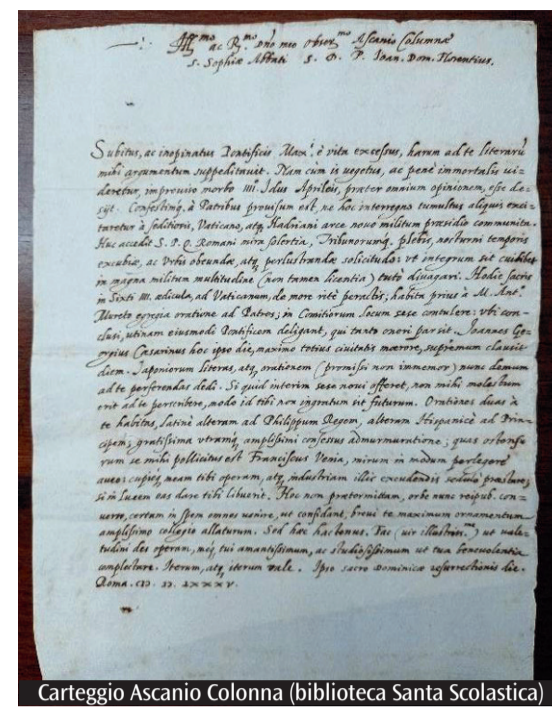 Ill.mo ac R.mo Dño meo Obser.mo Ascanio Columnæ
S. Sophiæ Abbati S. D. P. Ioan. Dom. Florentius.
Subitus, ac inopinatus Pontificis Max.i è vita excessus, harum ad te literarũ
mihi argumentum suppeditavit. Nam cùm is vegetus, ac penè immortalis vi-
deretur, improviso morbo IIII. Idus Aprileis, præter omnium opinionem, esse de-
sijt. Confestimq. à Patribus provisum est, ne hoc interregno tumultus aliquis exci-
taretur à seditiosis, Vaticano, atq. Hadriani arce novo militum præsidio communita.
Huc accedit S. P. Q. Romani mira solertia, Tribunorumq. plebis, nocturni temporis
excubiæ, ac Urbis obeundæ, atq. perlustrandæ solicitudo: ut integrum sit cuilibet
in magna militum multitudine (non tamen licentia) tutò divagari. Hodie sacris
in Sixti IIII. ædicula, ad Vaticanum, de more ritè peractis; habita prius à M. Ant.o
Mureto egregia oratione ad Patres; in Comitiorum locum sese contulere: ubi con-
clusi, utinam eiusmodi Pontificem deligant, qui tanto oneri par sit. Ioannes Geo-
rgius Cæsarinus hoc ipso die, maximo totius civitatis mœrore, supremum clausit
diem. Iaponiorum literas, atq. orationem (promissi non immemor) nunc demum
ad te perferendas dedi. Si quid interim sese novi offeret, non mihi molestum
erit ad te perscribere, modo id tibi non ingratum sit futurum. Orationes duas à
te habitas, Latinè alteram ad Philippum Regem, alteram Hispanicè ad Prin-
cipem; gratissima utramq. amplissimi consessus admurmuratione; quas
se mihi pollicitus est Franciscus Venia, mirum in modum perlegere
aveo: cupioq. meam tibi operam, atq. industriam illic excudendis sedulò præstare,
si in lucem eas dare tibi libuerit. Hoc non prætermittam, orbe nunc reipub. con-
verso, certam in spem omnes venire, ut confidant, brevi te maximum ornamentum
amplissimo collegio allaturum. Sed hæc hactenus. Fac (vir illustriss.me) ut vale-
tudini des operam, meq. tui amantissimum, ac studiosissimum ut tua benevolentia
complectare. Iterum, atq. iterum vale. Ipso sacro Dominicæ resurrectionis die.
Roma.
Carteggio Ascanio Colonna (biblioteca Santa Scolastica)